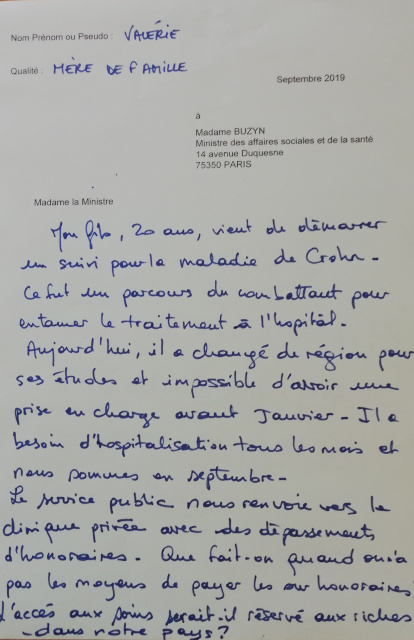 Nom Prénom ou Pseudo : VALÉRIE
Qualité : MÈRE DE FAMILLE
Septembre 2019
à
Madame BUZYN
Ministre des affaires sociales et de la santé
14 avenue Duquesne
75350 PARIS
Madame la Ministre
Mon fils, 20 ans, vient de démarrer
un suivi pour la maladie de Crohn -
Ce fut un parcours du combattant pour
entamer le traitement à l'hopital.
Aujourd'hui, il a changé de région pour
ses études et impossible d'avoir une
prise en charge avant Janvier - Il a
besoin d'hospitalisation tous les mois et
nous sommes en septembre -
Le service public nous renvoie vers la
clinique privée avec des dépassements
d'honoraires. Que fait-on quand on n'a
pas les moyens de payer les honoraires
L'accès aux soins serait-il réservé aux riches
dans notre pays ?